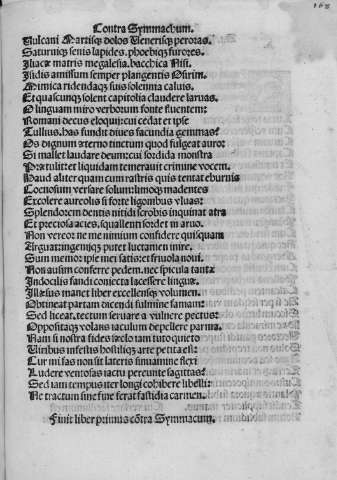 Contra Symmachum.
Vulcani Martisq; dolos Uenerisq; peroras.
Saturniq; senis lapides, phoebiq; furores.
Iliacæ matris megalesia. bacchica Nisi.
Isidis amissum semper plangentis Osirim.
Mimica ridendaq; suis solemnia caluis.
Et quæcunq; solent capitolia claudere laruas.
O linguam miro verborum fonte fluentem:
Romani decus eloquii: cui cedat et ipse
Tullius. has fundit diues facundia gemmas?
Os dignum æterno tinctum quod fulgeat auro:
Si mallet laudare deum: cui sordida monstra
Prætulit: et liquidam temerauit crimine vocem.
Haud aliter quam cum rastris quis tentat eburnis
Coenosum versare solum: limoq; madentes
Excolere aureolis si forte ligonibus vluas:
Splendorem dentis nitidi scrobis inquinat atra
Et preciosa acies. squalenti sordet in aruo.
Non vereor: ne me nimium confidere quisquam
Arguat: ingeniiq; putet luctamen inire.
Sum memor ipse mei satis: et friuola noui.
Non ausim conferre pedem. nec spicula tantæ
Indocilis fandi coniecta lacessere linguæ.
Illæsus manet liber excellensq; volumen.
Obtineat partam dicendi fulmine famam:
Sed liceat. tectum seruare a vulnere pectus:
Oppositaq; volans iaculum depellere parma.
Nam si nostra fides sæclo iam tuto quieto
Uiribus infestis hostiliq; arte petita est:
Cur mi fas non sit lateris sinuamine flexi
Ludere ventosas iactu pereunte sagittas?
Sed iam tempus iter longi cohibere libelli:
Ne tractum sine fine ferat fastidia carmen.
Finit liber primus cōtra Symmacum.